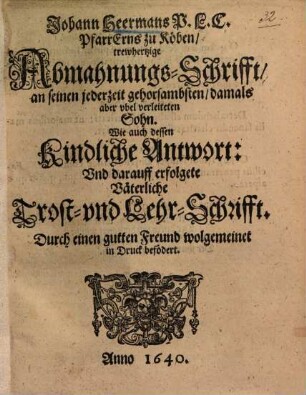 32
Johann Heermans P. L. C.
PfarrErns zu Köben/
trewhertzige
Abmahnungs-Schrifft/
an seinen jederzeit gehorsambsten/ damals
aber vbel verleiteten
Sohn.
Wie auch dessen
Kindliche Antwort:
Vnd darauff erfolgete
Väterliche
Trost-vnd Lehr-Schrifft.
Durch einen gutten Freund wolgemeinet
in Druck befödert.
Anno 1640.